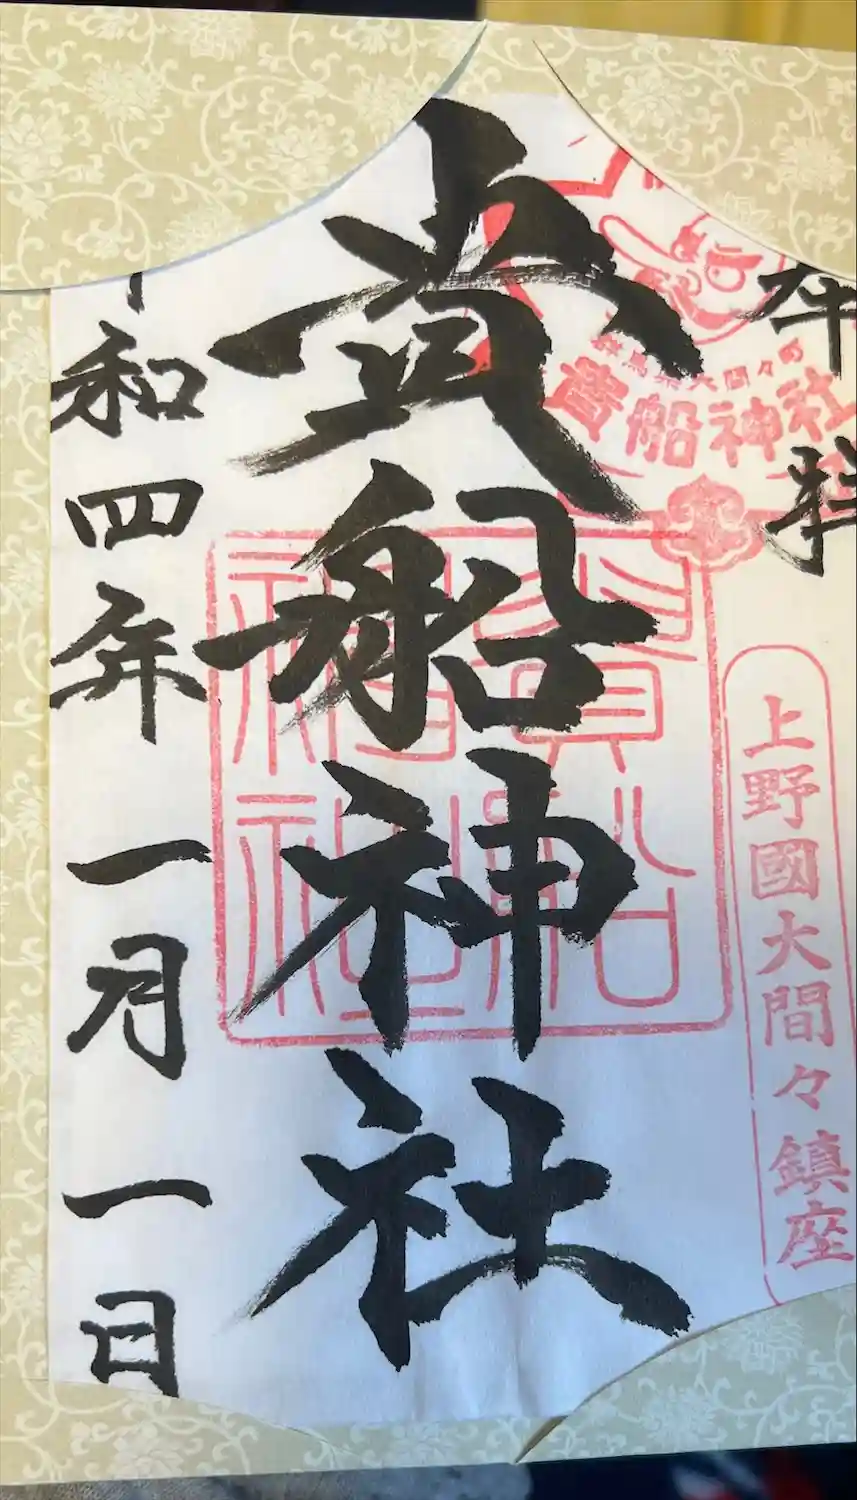 奉拝
群馬県大間々の
貴船神社
上野國大間々鎮座
貴船神社
貴船神社
和四年一月一日